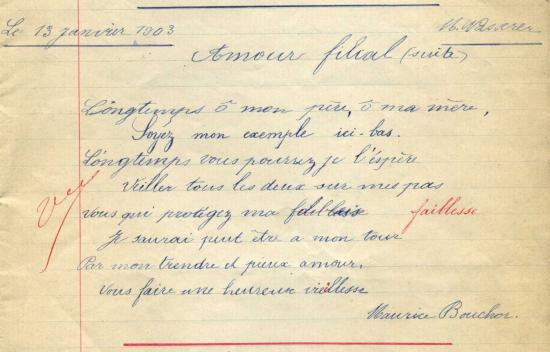 Le 13 janvier 1903
Amour filial (suite)
Longtemps ô mon père, ô ma mère,
Soyez mon exemple ici-bas.
Longtemps vous pourrez je l'éspère
Veiller tous les deux sur mes pas
Vous qui protigez ma faillesse
Je saurai peut être a mon tour
Par mon trendre et pieux amour,
Vous faire une heureux vieillesse
Maurice Bouchor.